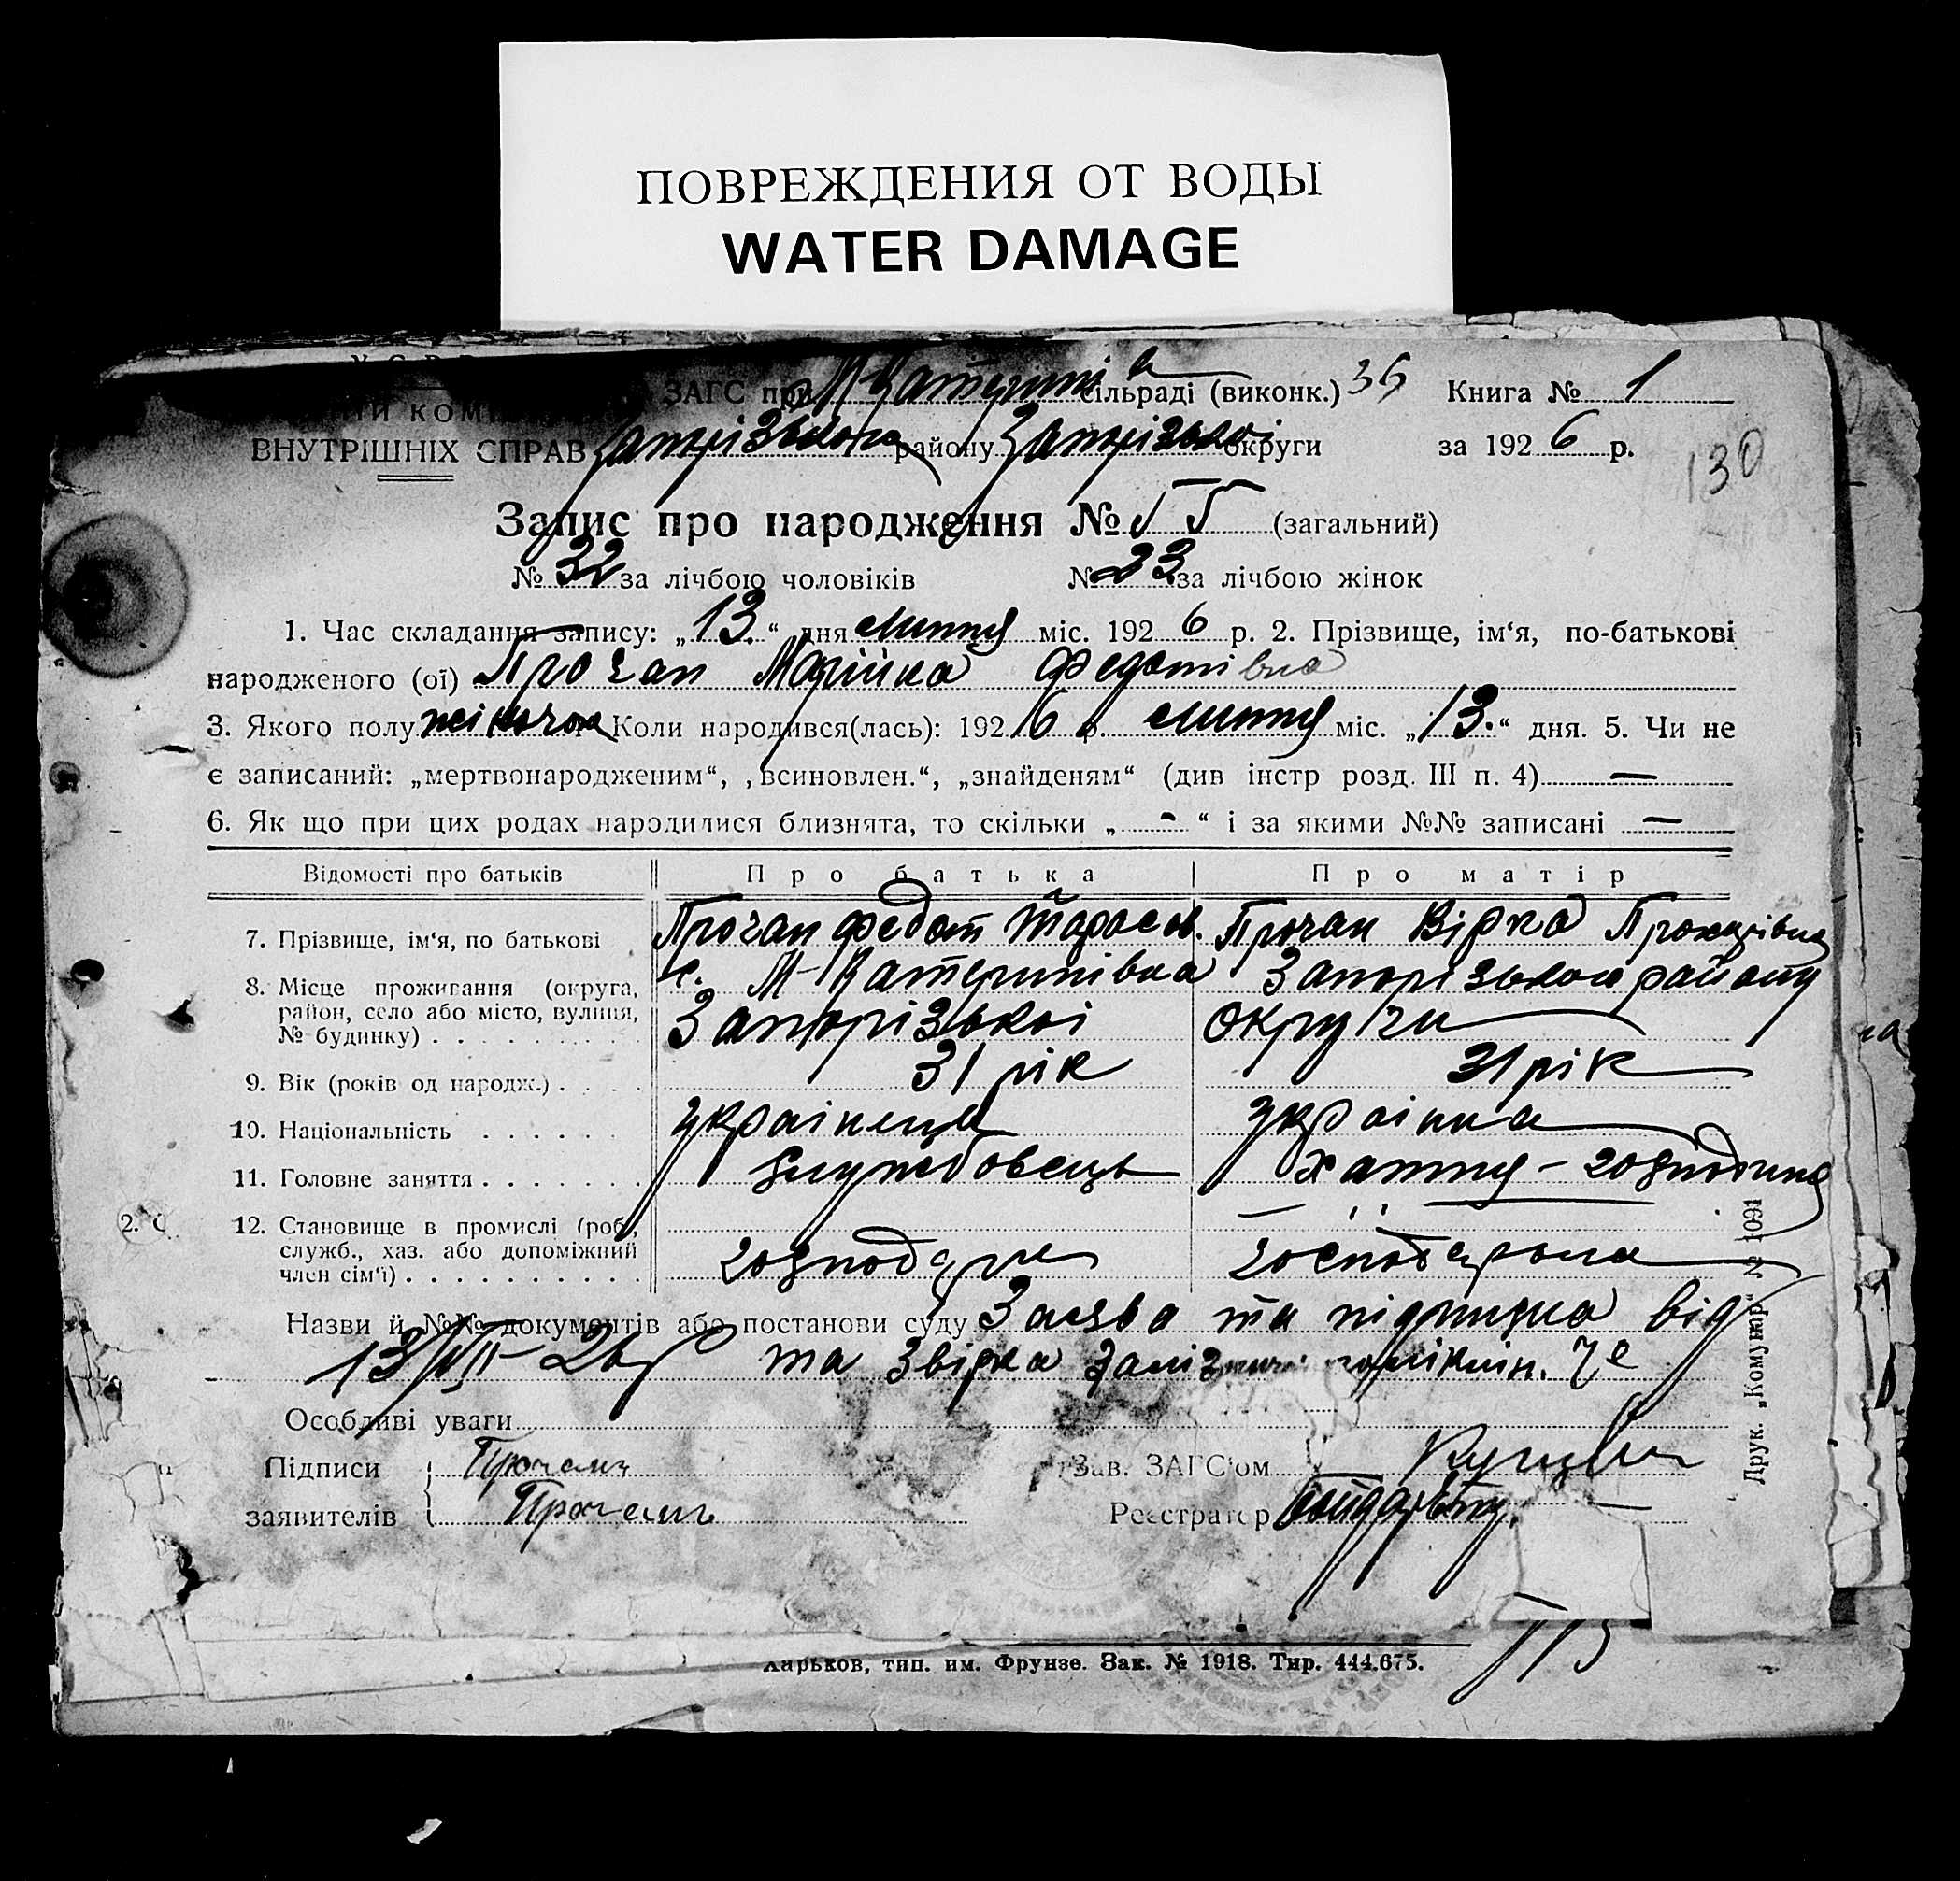 ПОВРЕЖДЕНИЯ ОТ ВОДЫ
WATER DAMAGE
ЗАГС при М-Катерині сільраді (виконк.) Книга № 1
ВНУТРІШНІХ СПРАВ Запорізького району Запорізької округи за 1926 р.
130
Запис про народження № 55 (загальний)
№ 32 за лічбою чоловіків № 23 за лічбою жінок
1. Час складання запису: „13“ дня липня міс. 1926 р. 2. Прізвище, ім‘я, по-батькові
народженого (ої) Прочан Марійка Федотівна
3. Якого полу жіночого Коли народився(лась): 1926 р. липня міс. „13.“ дня. 5. Чи не
є записаний: „мертвонародженим“, „всиновлен.“, „знайденям“ (див інстр розд. III п. 4) —
6. Як що при цих родах народилися близнята, то скільки „ - “ і за якими №№ записані —
Відомості про батьків Про батька Про матір
7. Прізвище, ім‘я, по батькові Прочан Федот Тарасов. Прочан Вірка
8. Місце проживання (округа, район, село або місто, вулиця, № будинку) с. М-Катеринівка Запорізького району
Запорізької округи
9. Вік (років од народж.) 31 рік 31 рік
10. Національність українець українка
11. Головне заняття службовець хатня - господиня
12. Становище в промислі (роб., служб., хаз. або допоміжний член сім‘ї) господар господарька
Назви й №№ документів або постанови суду Заява та підписка від
13/VII-26 р та звірка
Особливі уваги
Підписи Прочан
заявителів Прочан
Зав. ЗАГС‘ом
Реєстратор
Друк. „Комунар“ № 1091
Харьков, тип. им. Фрунзе. Зак. № 1918. Тир. 444.675.